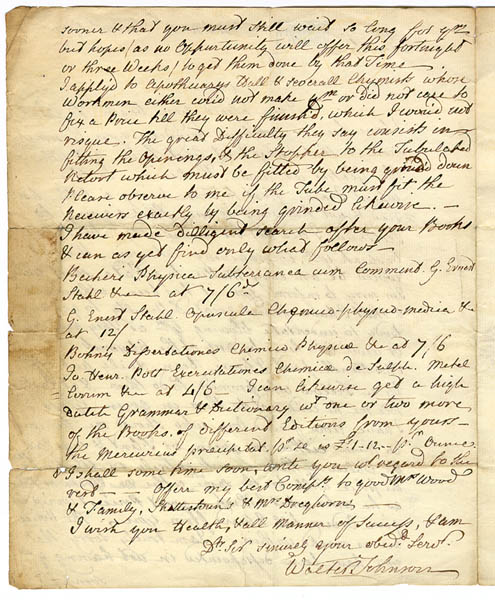 sooner & that you must still wait so long for ym
but hopes (as no Opportunity will offer this fortnight
or three Weeks) to get them done by that Time
I applyd to Apothecarys Hall & severall Chymists whose
Workmen either could not make ym or did not care to
fix a Price till they were finish'd, which I would not
risque. The great Difficulty they say consists in
fitting the Openings, & the Stopper to the Tubulated
Retort which must be fitted by being ground down
Please observe to me if the Tube must fit the
Receivers exactly by being grinded likewise. —
I have made diligent search after your Books
& can as yet find only what follows
Bechers Physica Subterranea cum Comment. G. Ernest
Stahl &ca — at 7/6d
G. Ernest Stahl Opuscula Chemico-physico-medica &c
at 12/
Bohnij Dissertationes Chemico Physicæ &c at 7/6
Jo. Henr. Pott Exercitationes Chemicæ de Sulph. Metal
lorum &c at 4/6 — I can likewise get a high
Dutch Grammar & Dictionary wt one or two more
of the Books of different Editions from yours —
the Mercurius precipitat. pr se is £1-12- pr Ounce
& I shall some time soon, write you wt regard to the
rest — Offer my best Complts to good Mrs Wood
& Family, & Mrs Dreghorn
I wish you Health, & all Manner of Success, & am
Dr Sir sincerely your obedt Servt
Walter Johnson